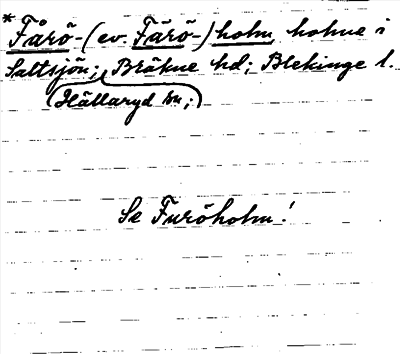 * Fårö- (ev. Färö-) holm, holme i
Saltsjön; Bräkne hd; Blekinge l.
(Hällaryd sn;)
Se Furöholm!